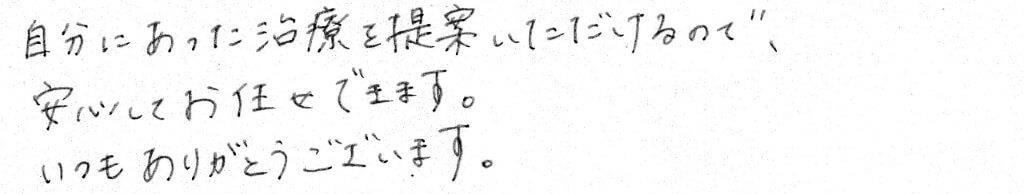 自分にあった治療を提案いただけるので、
安心してお任せできます。
いつもありがとうございます。